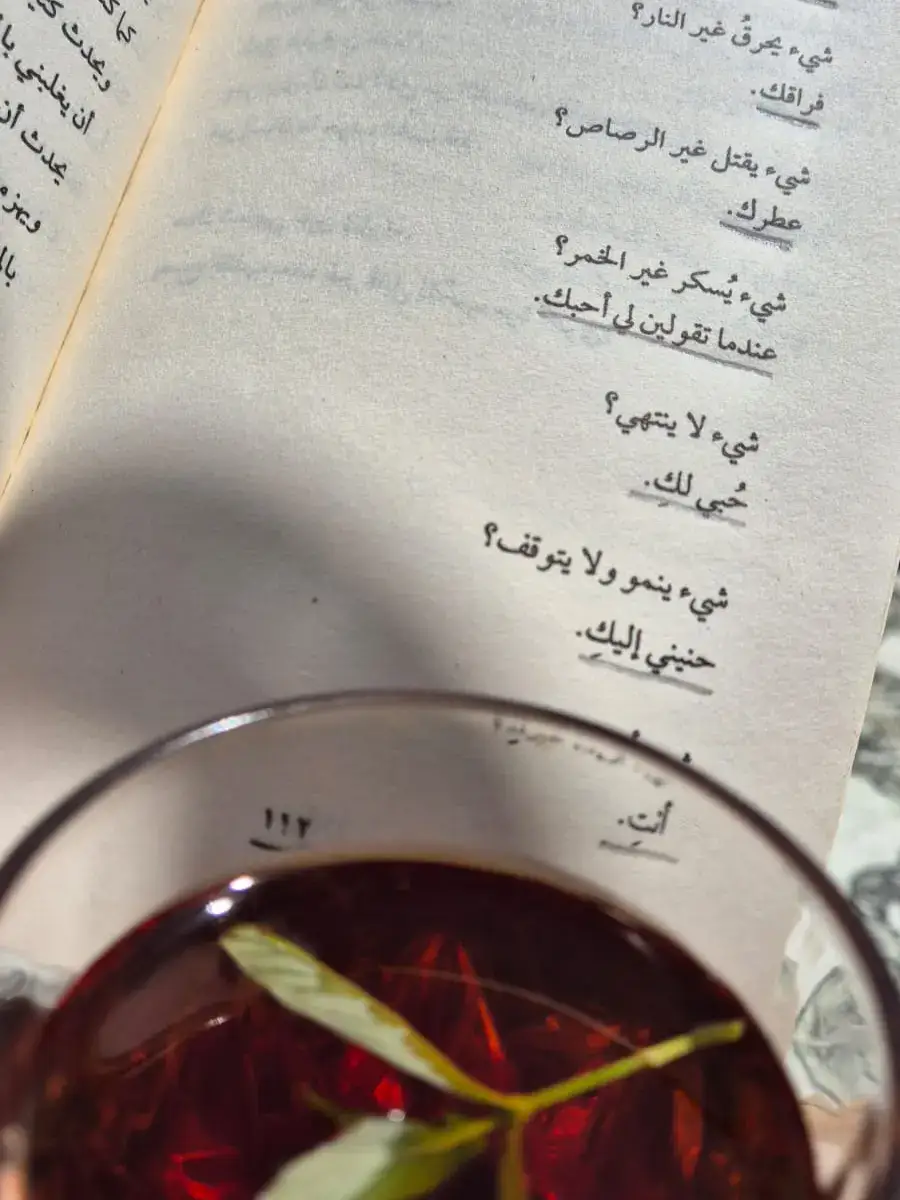 شيء يحرقُ غير النار؟
فراقك.
شيء يقتل غير الرصاص؟
عطرك.
شيء يُسكر غير الخمر؟
عندما تقولين لي أحبك.
شيء لا ينتهي؟
حُبي لكِ.
شيء ينمو ولا يتوقف؟
حنيني إليكِ.
أنتِ.
١١٢
ويحدث
أن يغلبني
يحدث أن